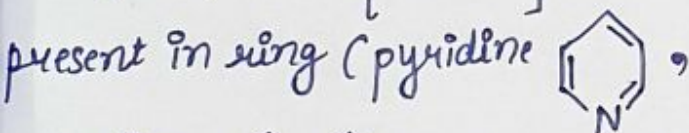 present in ring (pyridine N ,